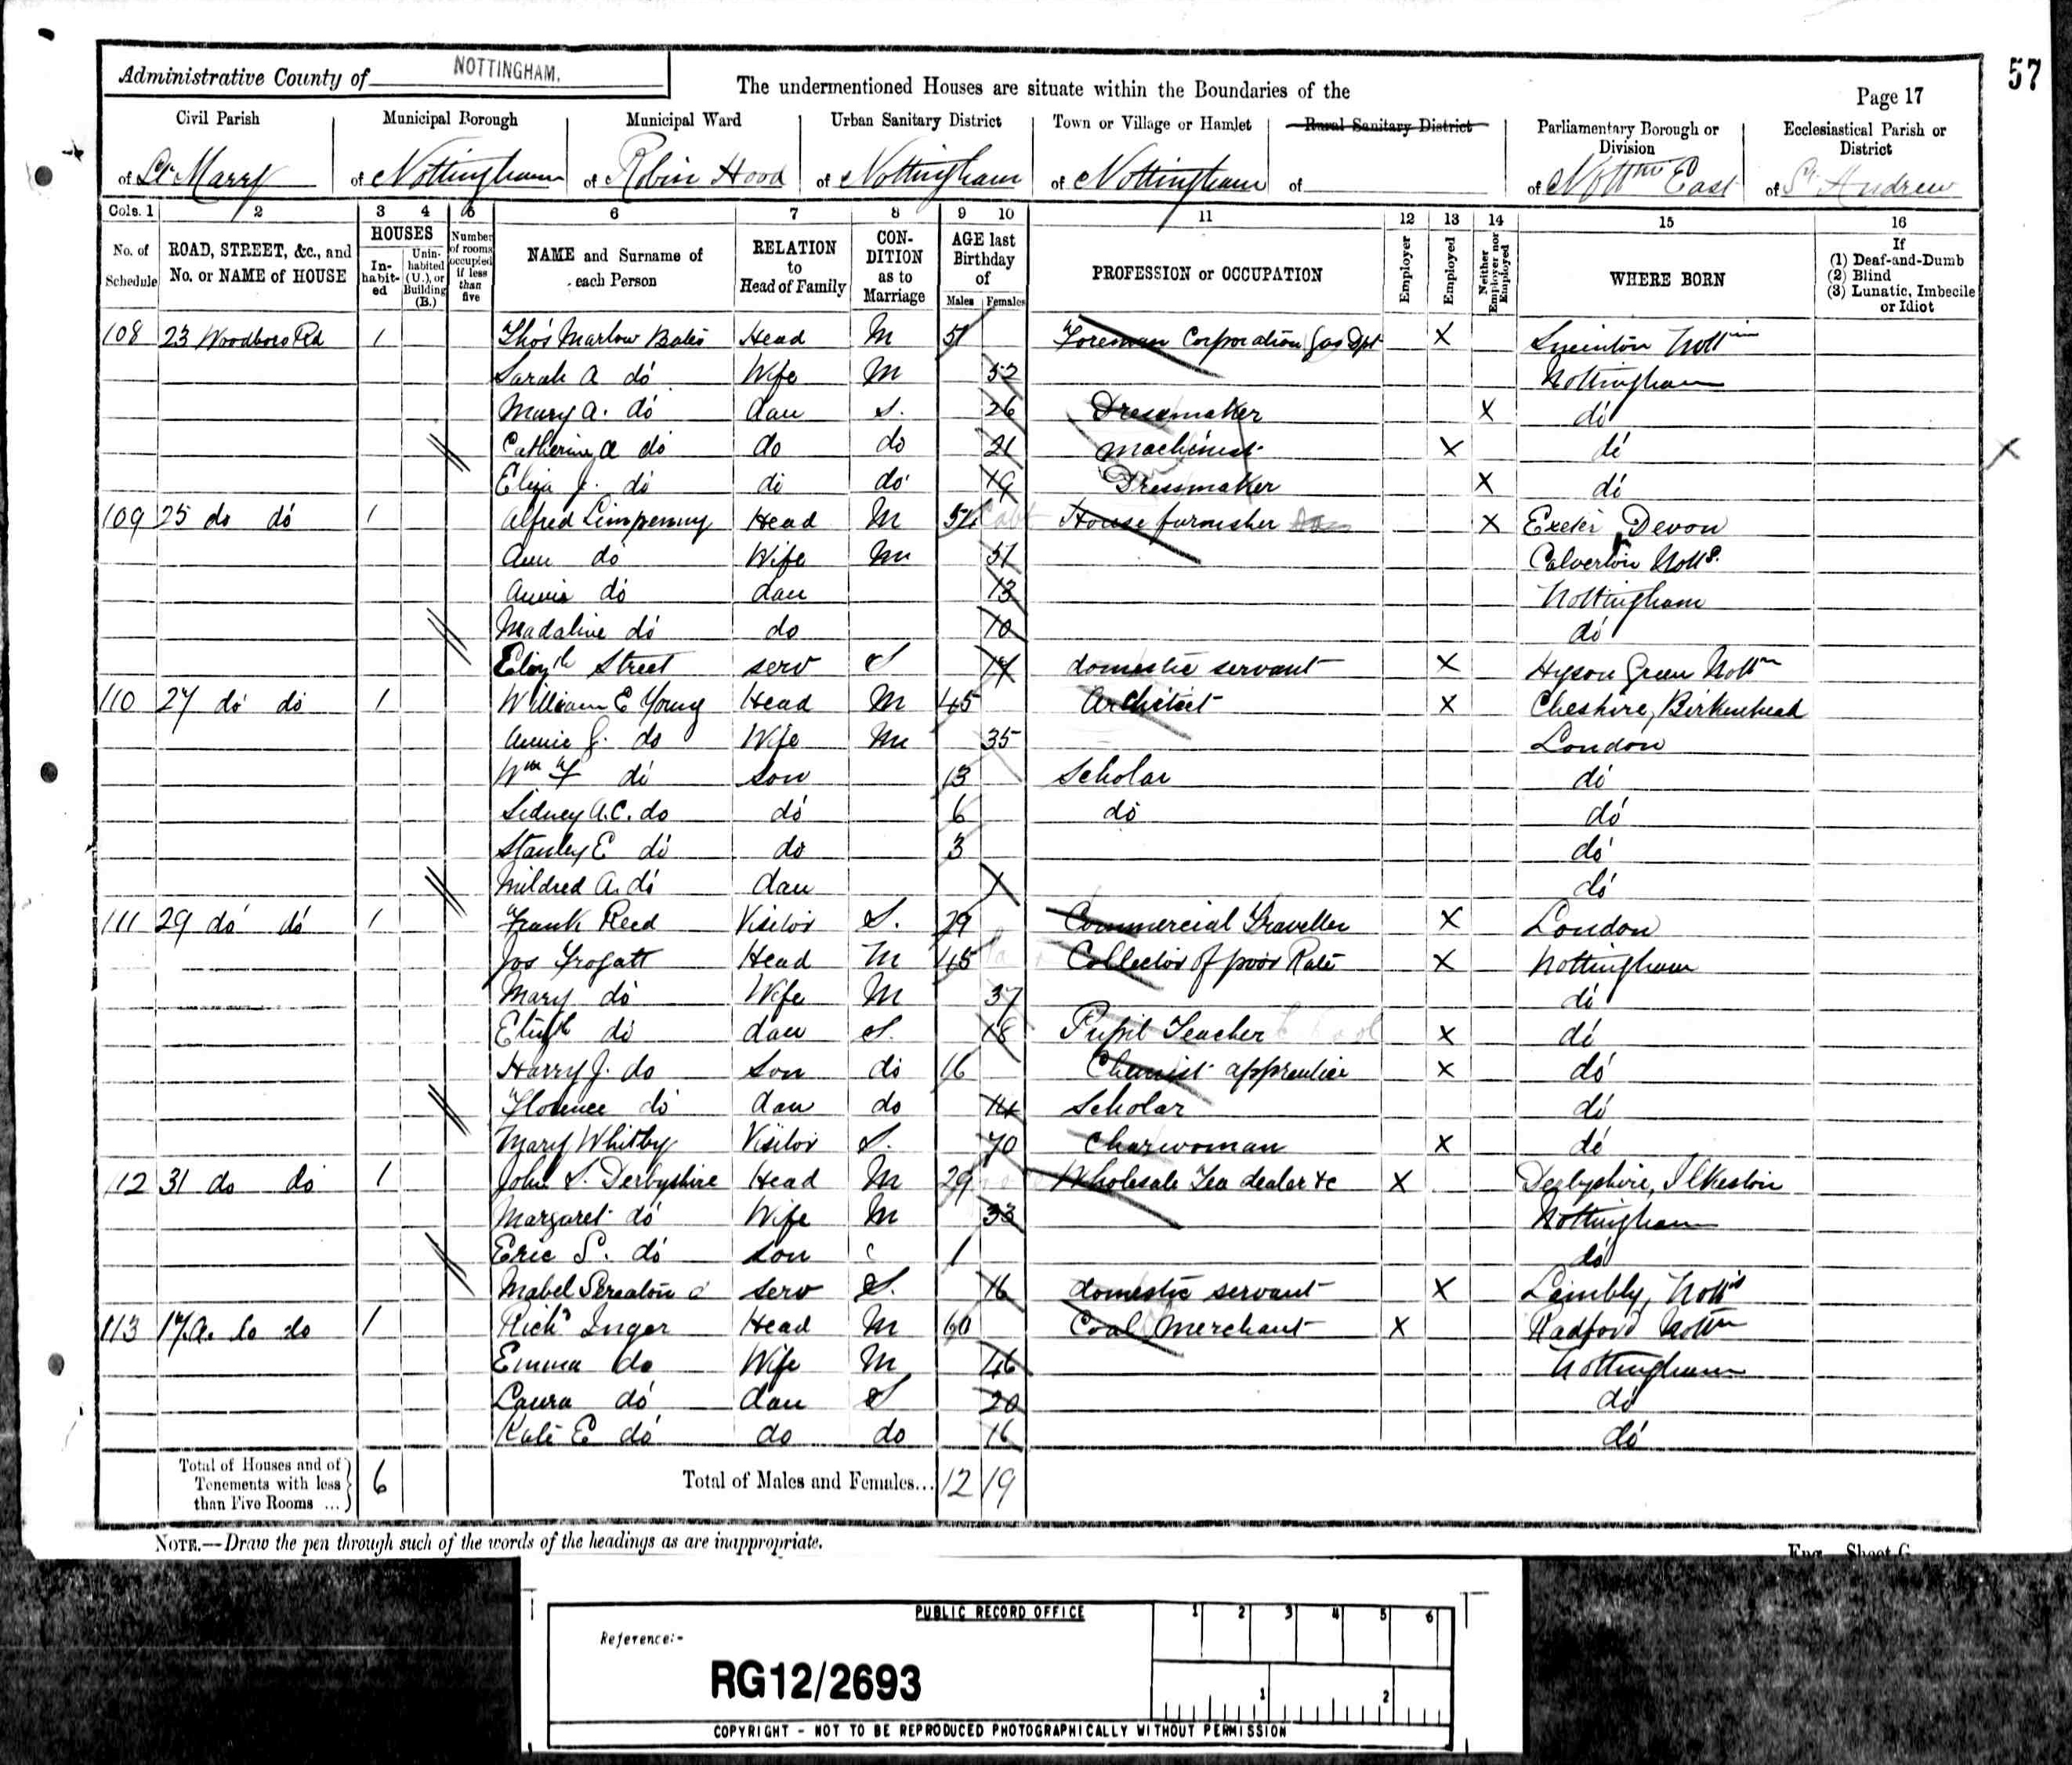 57
Administrative County of NOTTINGHAM.
The undermentioned Houses are situate within the Boundaries of the
Page 17
Civil Parish Municipal Borough Municipal Ward Urban Sanitary District Town or Village or Hamlet Rural Sanitary District Parliamentary Borough or Division Ecclesiastical Parish or District
of St Mary of Nottingham of Robin Hood of Nottingham of Nottingham of of Nottm East of St Andrew
Cols. 1 2 3 4 5 6 7 8 9 10 11 12 13 14 15 16
No. of Schedule ROAD, STREET, &c., and No. or NAME of HOUSE HOUSES Inhabited Uninhabited (U.), or Building (B.) Number of rooms occupied if less than five NAME and Surname of each Person RELATION to Head of Family CONDITION as to Marriage AGE last Birthday of Males Females PROFESSION or OCCUPATION Employer Employed Neither Employer nor Employed WHERE BORN If (1) Deaf-and-Dumb (2) Blind (3) Lunatic, Imbecile or Idiot
108 23 Woodboro Rd 1 Thos Marlow Bates Head M 51 Foreman Corporation Gas Dpt X Sneinton Nottm
Sarah A do Wife M 52 Nottingham
Mary A. do dau S. 26 Dressmaker X do
Catherine A do do do 21 Machinist X do
Eliza J. do do do 19 Dressmaker X do
109 25 do do 1 Alfred Limpenny Head M House furnisher X Exeter Devon
Ann do Wife M 51 Calverton Notts.
Annie do dau 13 Nottingham
Madaline do do 10 do
Elizth Street serv S 17 domestic servant X Hyson Green Nottm
110 27 do do 1 William E Young Head M 45 Architect X Cheshire, Birkenhead
Annie G. do Wife M 35 London
Wm F do son 13 Scholar do
Sidney A.C. do do 6 do do
Stanley E do do 3 do
Mildred A. do dau 1 do
111 29 do do 1 Frank Reed Visitor S. 29 Commercial Traveller X London
Jos Frogatt Head M 45 Collector of poor Rate X Nottingham
Mary do Wife M 37 do
Elizth do dau S. 18 Pupil Teacher School X do
Harry J. do Son do 16 Chemist apprentice X do
Florence do dau do 14 Scholar do
Mary Whitby Visitor S. 70 Charwoman X do
112 31 do do 1 John S. Derbyshire Head M 29 Wholesale Tea dealer &c X Derbyshire, Ilkeston
Margaret do Wife M 33 Nottingham
Eric S. do son 1 do
Mabel serv S. 16 domestic servant X Lambly, Notts
113 17A. do do 1 Richd Inger Head M 60 Coal Merchant X Radford Nottm
Emma do Wife M 46 Nottingham
Laura do dau S 20 do
Kate E do do do 16 do
Total of Houses and of Tenements with less than Five Rooms ... 6 Total of Males and Females... 12 19
NOTE.—Draw the pen through such of the words of the headings as are inappropriate.
Eng.—Sheet G
PUBLIC RECORD OFFICE
1 2 3 4 5 6
Reference:-
RG12/2693
1 2
COPYRIGHT - NOT TO BE REPRODUCED PHOTOGRAPHICALLY WITHOUT PERMISSION